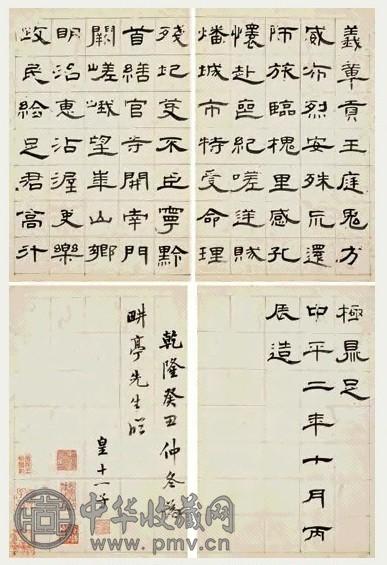 義章貢王庭鬼方
威布烈安殊荒還
師旅臨槐里感孔
懷赴喪紀嗟逆賊
燔城市特受命理
殘圮芟不臣寧黔
首繕官寺開南門
闕嵯峨望華山鄉
明治惠沾渥吏樂
政民給足君高升
極鼎足
中平二年十月丙
辰造
乾隆癸丑仲冬
畊亭先生
皇十一子
中华收藏网
www.pmv.cn